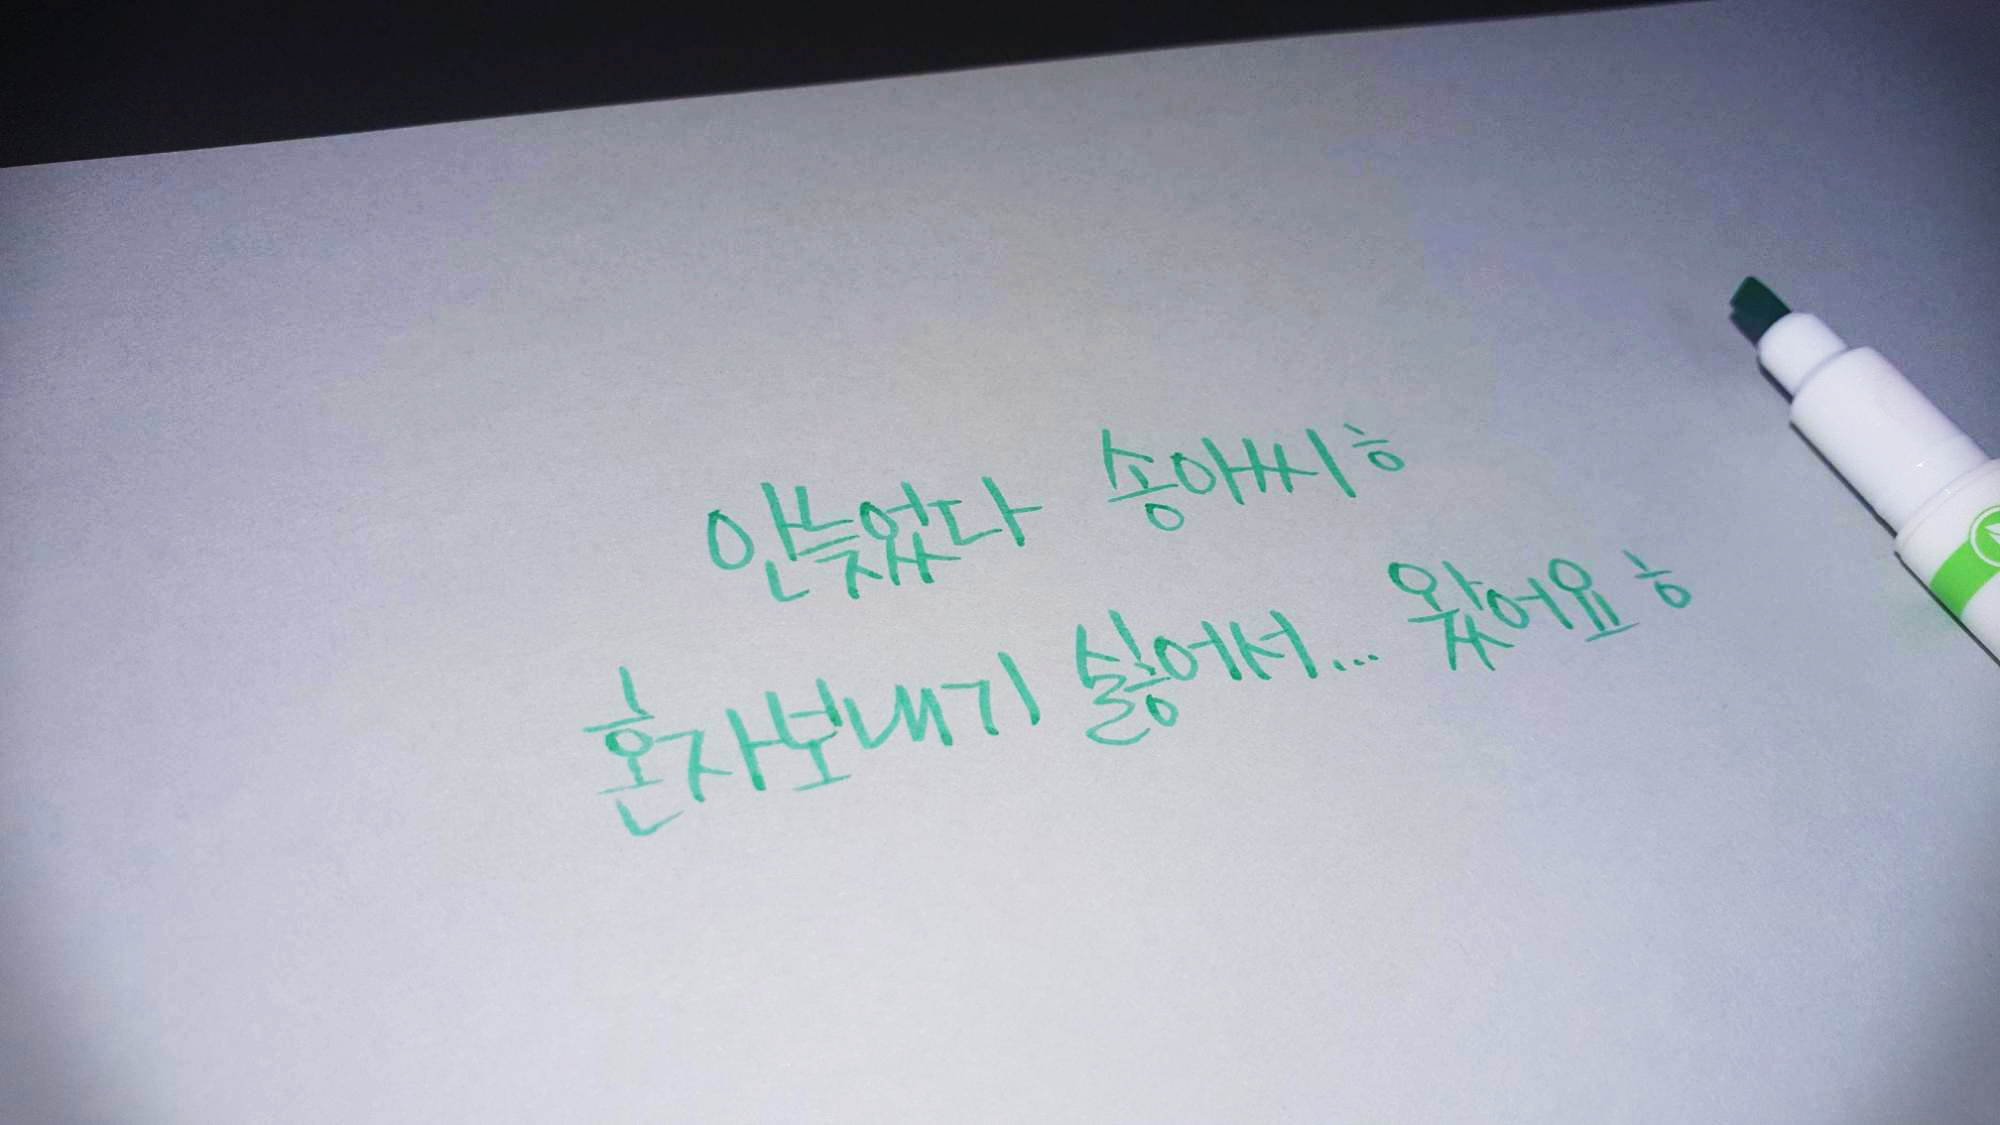 안늦었다 송아씨ㅎ
혼자보내기 싫어서... 왔어요ㅎ